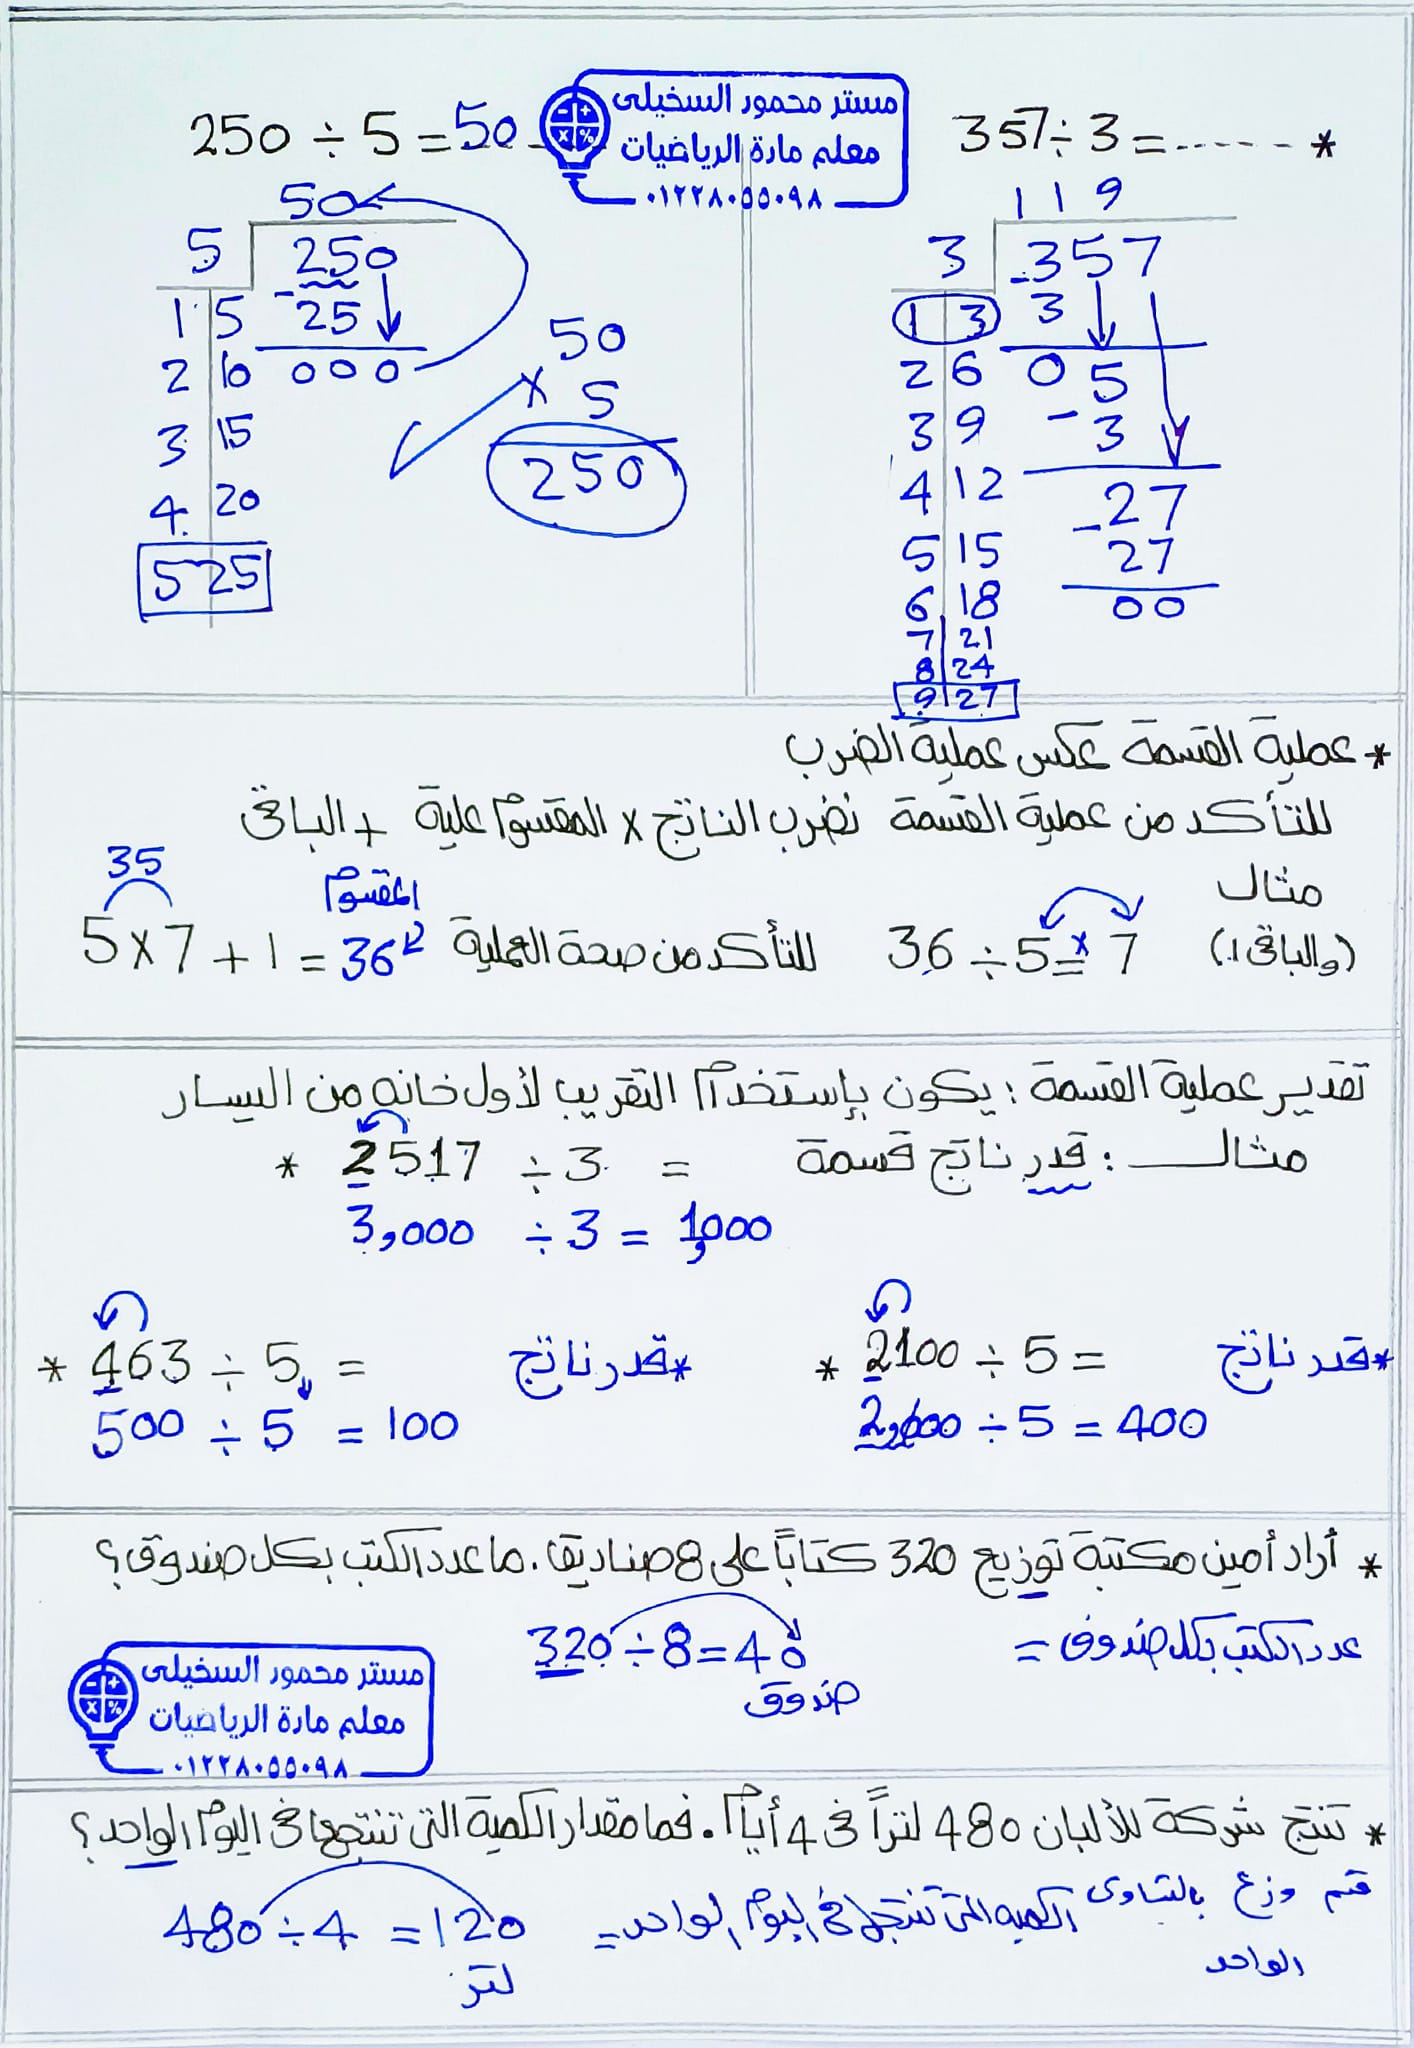 * 357 ÷ 3 = ------
119
3 357
1 3 3
2 6 0 5
3 9 - 3
4 12 - 27
5 15 27
6 18 00
7 21
8 24
9 27
مستر محمور السخيلى
معلم مارة الرياضيات
٠١٢٢٨٠٥٥٠٩٨
250 ÷ 5 = 50
50
5 250
1 5 - 25
2 10 000
3 15
4 20
5 25
50
× 5
250
* عملية القسمة عكس عملية الضرب
للتأكد من عملية القسمة نضرب الناتج × المقسوم علية + الباقى
مثال
36 ÷ 5 = 7 × (والباقى 1)
للتأكد من صحة العملية
المقسوم
35
5 × 7 + 1 = 36
تقدير عملية القسمة : يكون بإستخدام التقريب لأول خانه من اليسار
مثال : قدر ناتج قسمة
* 2517 ÷ 3 =
3,000 ÷ 3 = 1,000
* قدر ناتج
* 2100 ÷ 5 =
2,000 ÷ 5 = 400
* قدر ناتج
* 463 ÷ 5 =
500 ÷ 5 = 100
* أراد أمين مكتبة توزيع 320 كتاباً على 8 صناديق . ما عدد الكتب بكل صندوق ؟
عدد الكتب بكل صندوق =
320 ÷ 8 = 40
صندوق
مستر محمور السخيلى
معلم مارة الرياضيات
٠١٢٢٨٠٥٥٠٩٨
* تنتج شركة للألبان 480 لتراً فى 4 أيام . فما مقدار الكمية التى تنتجها فى اليوم الواحد ؟
قسم وزع بالتساوى
الواحد
الكمية التى تنتجها فى اليوم الواحد =
480 ÷ 4 = 120
لتر